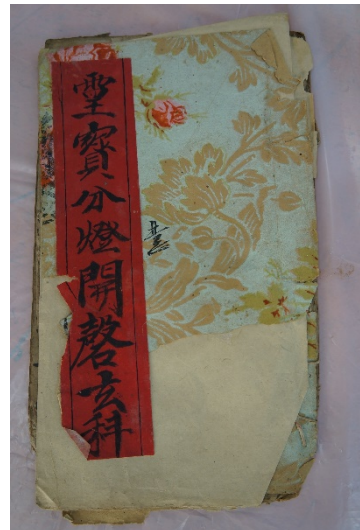 靈寶分燈開磬玄科